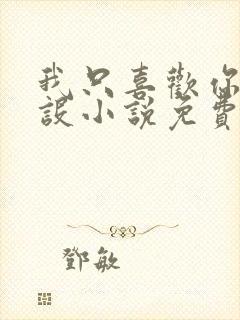 我只喜歡你
設小說免費
鄧敏